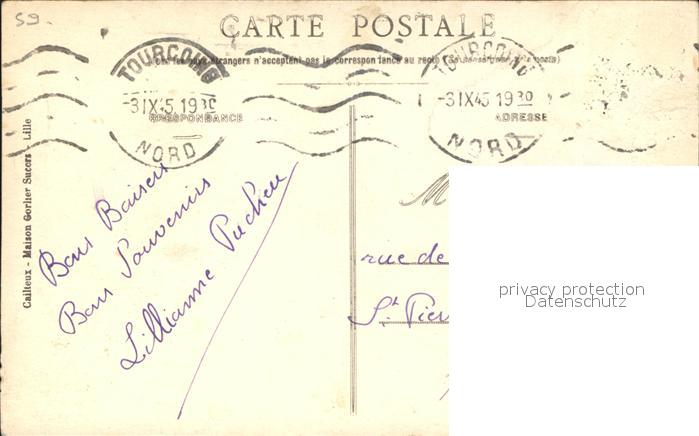 59-
CARTE POSTALE
pays étrangers n'acceptent pas la correspondance au recto
TOURCOING
-3IX45 1930
NORD
TOURCOING
-3IX45 1930
NORD
CORRESPONDANCE
ADRESSE
Cailteux - Maison Gorlier Succrs Lille
Bons Baisers
Bons Souvenirs
Lillianne
M
rue de
St Pier
privacy protection
Datenschutz